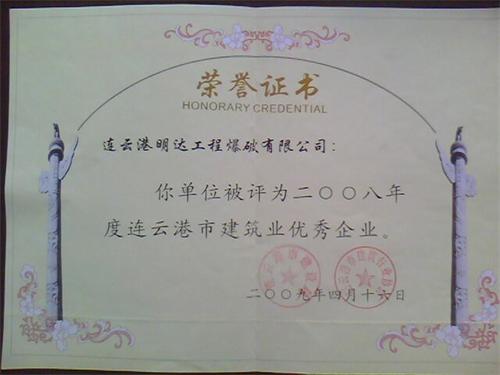 荣誉证书
HONORARY CREDENTIAL
连云港明达工程爆破有限公司：
你单位被评为二〇〇八年
度连云港市建筑业优秀企业。
二〇〇九年四月十六日